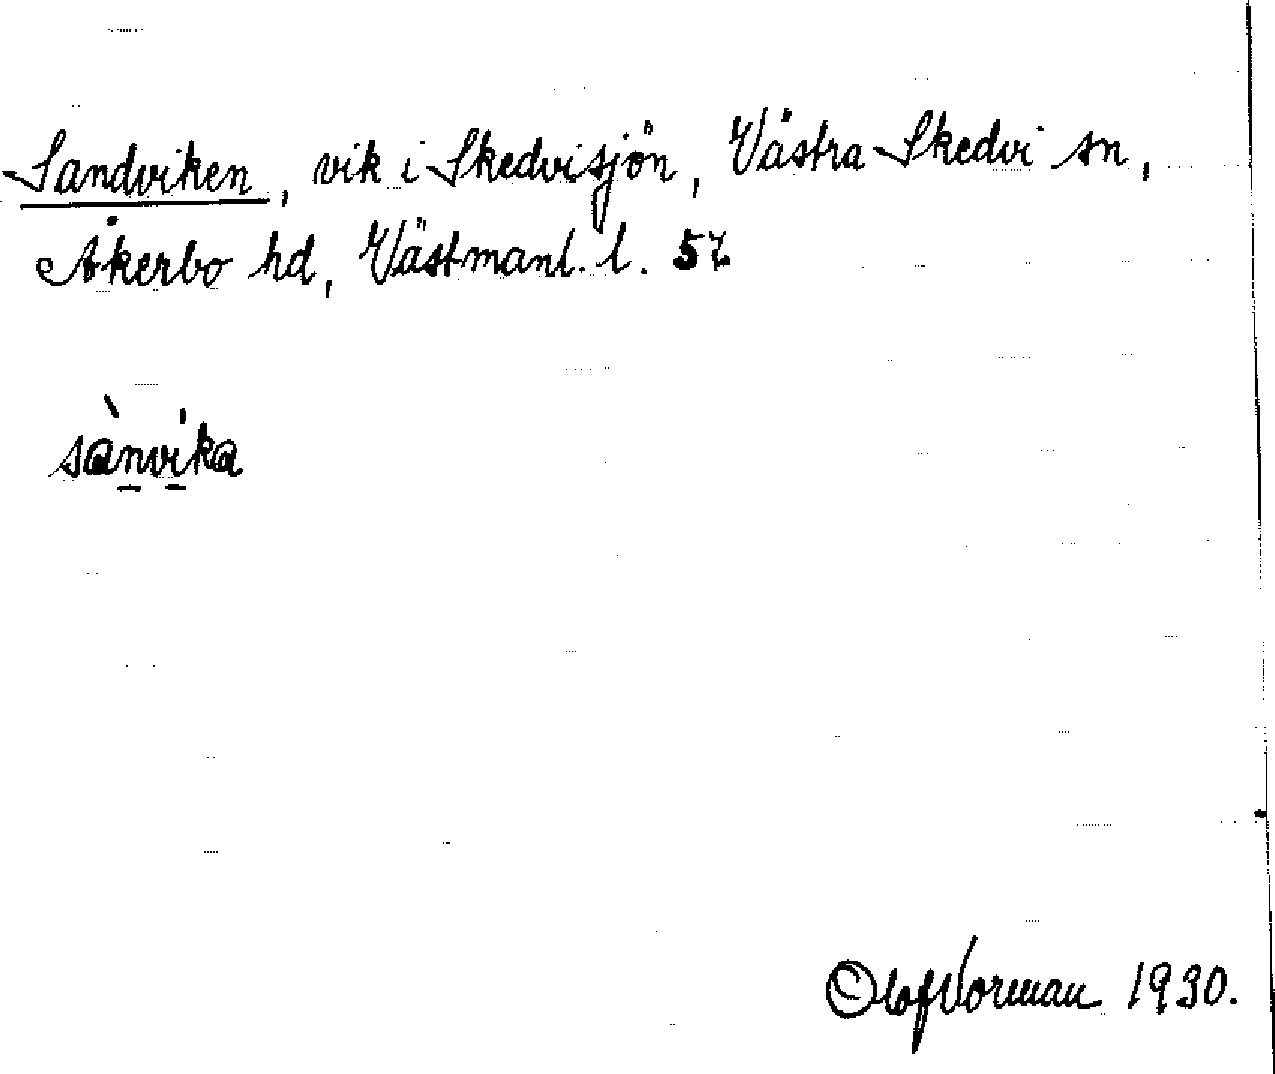 Sandviken, vik i Skedvisjön, Västra Skedvi sn,
Åkerbo hd, Västmanl. l. 57
sànvika
Olof Norman 1930.